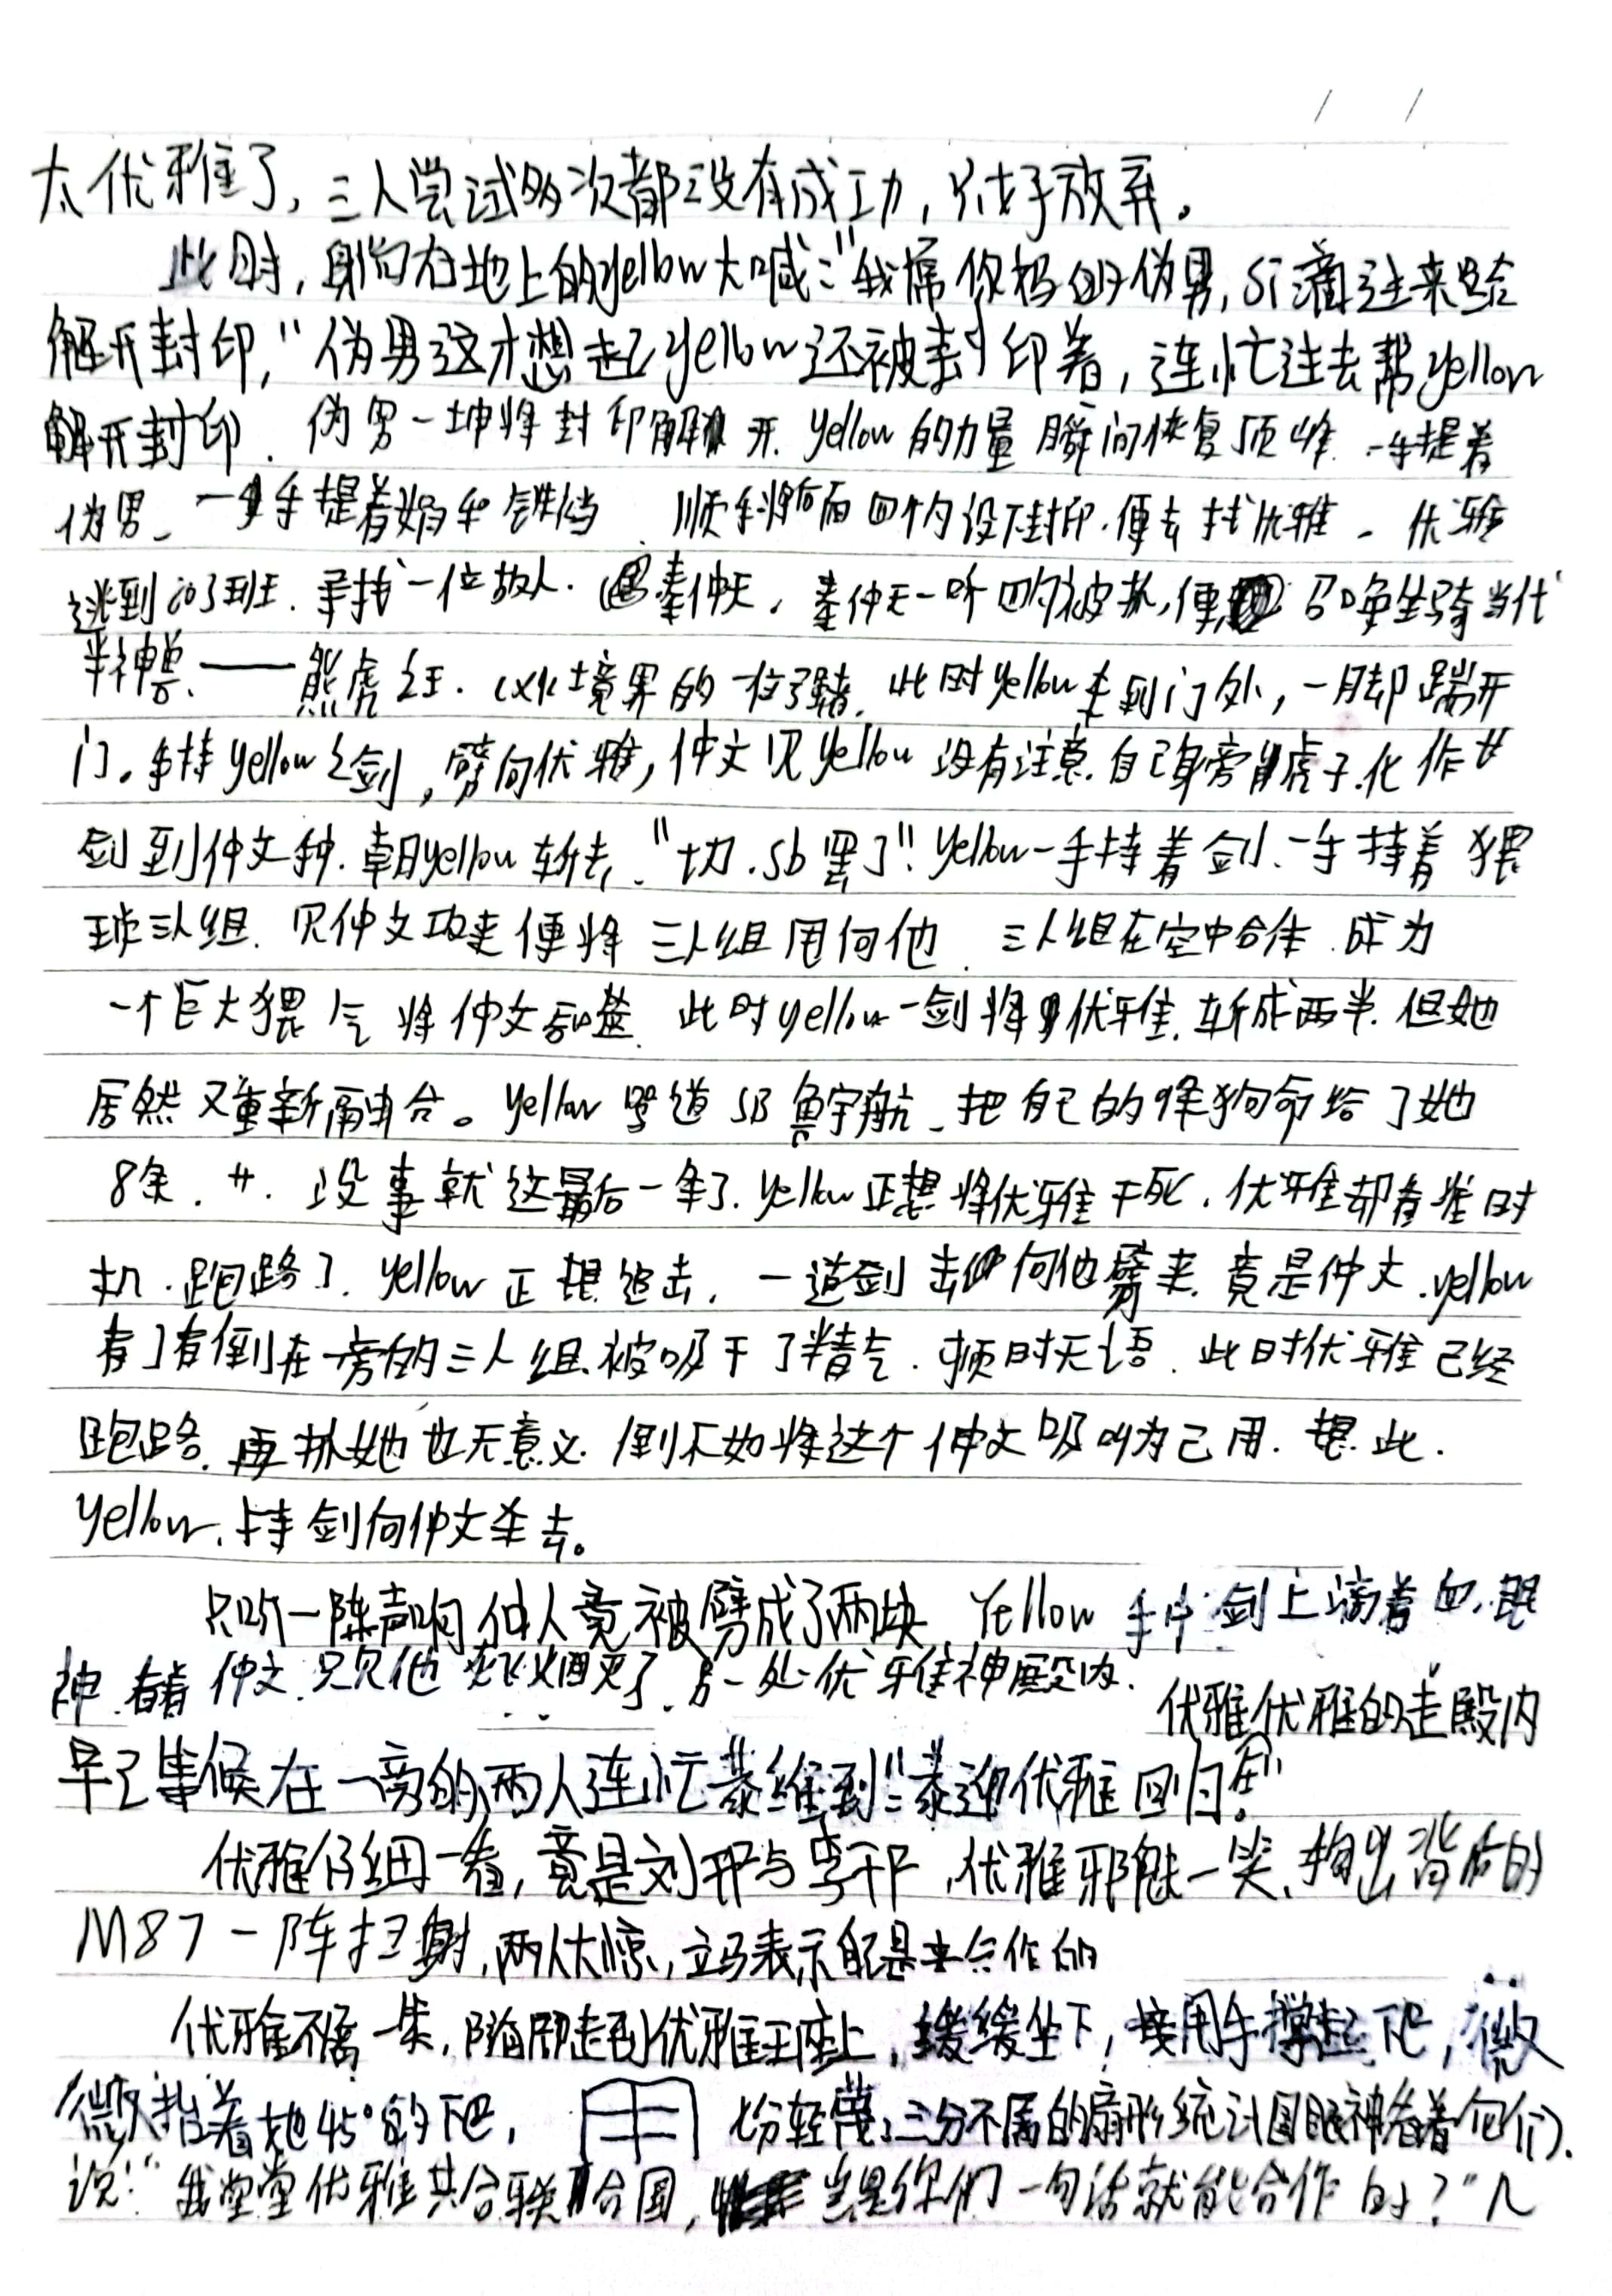 太优雅了,三人尝试多次都没有成功,只好放弃。
此时,躺在地上的yellow大喊:"我 你 伪男,过来给
解开封印,"伪男这才想起yellow还被封印着,连忙过去帮yellow
解开封印.伪男一坤将封印解开.yellow的力量瞬间恢复顶峰.一手提着
伪男、一手提着娟和铁 .顺手将 四个内设下封印.便去找优雅.优雅
逃到 班.寻找一位故人. 秦仲天,秦仲天一听 被抓,便 召唤坐骑当代
半神兽——熊虎之王. 境界的 .此时yellow走到门外,一脚踹开
门。手持yellow之剑,劈向优雅,仲文见yellow没有注意.自己身旁 虎子.化作
剑到仲文 .朝yellow斩去,"切.sb罢了"!yellow一手持着剑.一手持着猥
琐三人组.见仲文攻来便将三人组甩向他.三人组在空中合体.成为
一个巨大猥气将仲文 .此时yellow一剑将优雅.斩成两半.但她
居然又重新融合。yellow骂道SB鲁宇航.把自己的 狗命给了她
8条. .没事就这最后一条了.yellow正想将优雅干死.优雅却看准时
机.跑路了.yellow正想追去.一道剑 向他劈来.竟是仲文.yellow
看了看倒在一旁的三人组.被吸干了精气.顿时无语.此时优雅已经
跑路.再抓她也无意义.倒不如将这个仲文吸收为己用.想此.
yellow.持剑向仲文杀去。
只听一阵声响仲人竟被劈成了两块 Yellow手中剑上滴着血.眼
神看着仲文.只见他灰飞烟灭了.另一处优雅神殿内.
优雅优雅的走殿内
早已等候在一旁的两人连忙恭维到:"恭迎优雅回归!"
优雅仔细一看,竟是刘 与李 ,优雅邪魅一笑.掏出背后的
M87一阵扫射,两人大惊,立马表示 是来合作的
优雅不屑一笑,随即走到优雅王座上,缓缓坐下,接用手撑起下巴,微
微抬着她45°的下巴, 七分轻蔑三分不屑的扇形统计图眼神看着它们.
说:"我堂堂优雅共合联合国, 岂是你们一句话就能合作的?"几